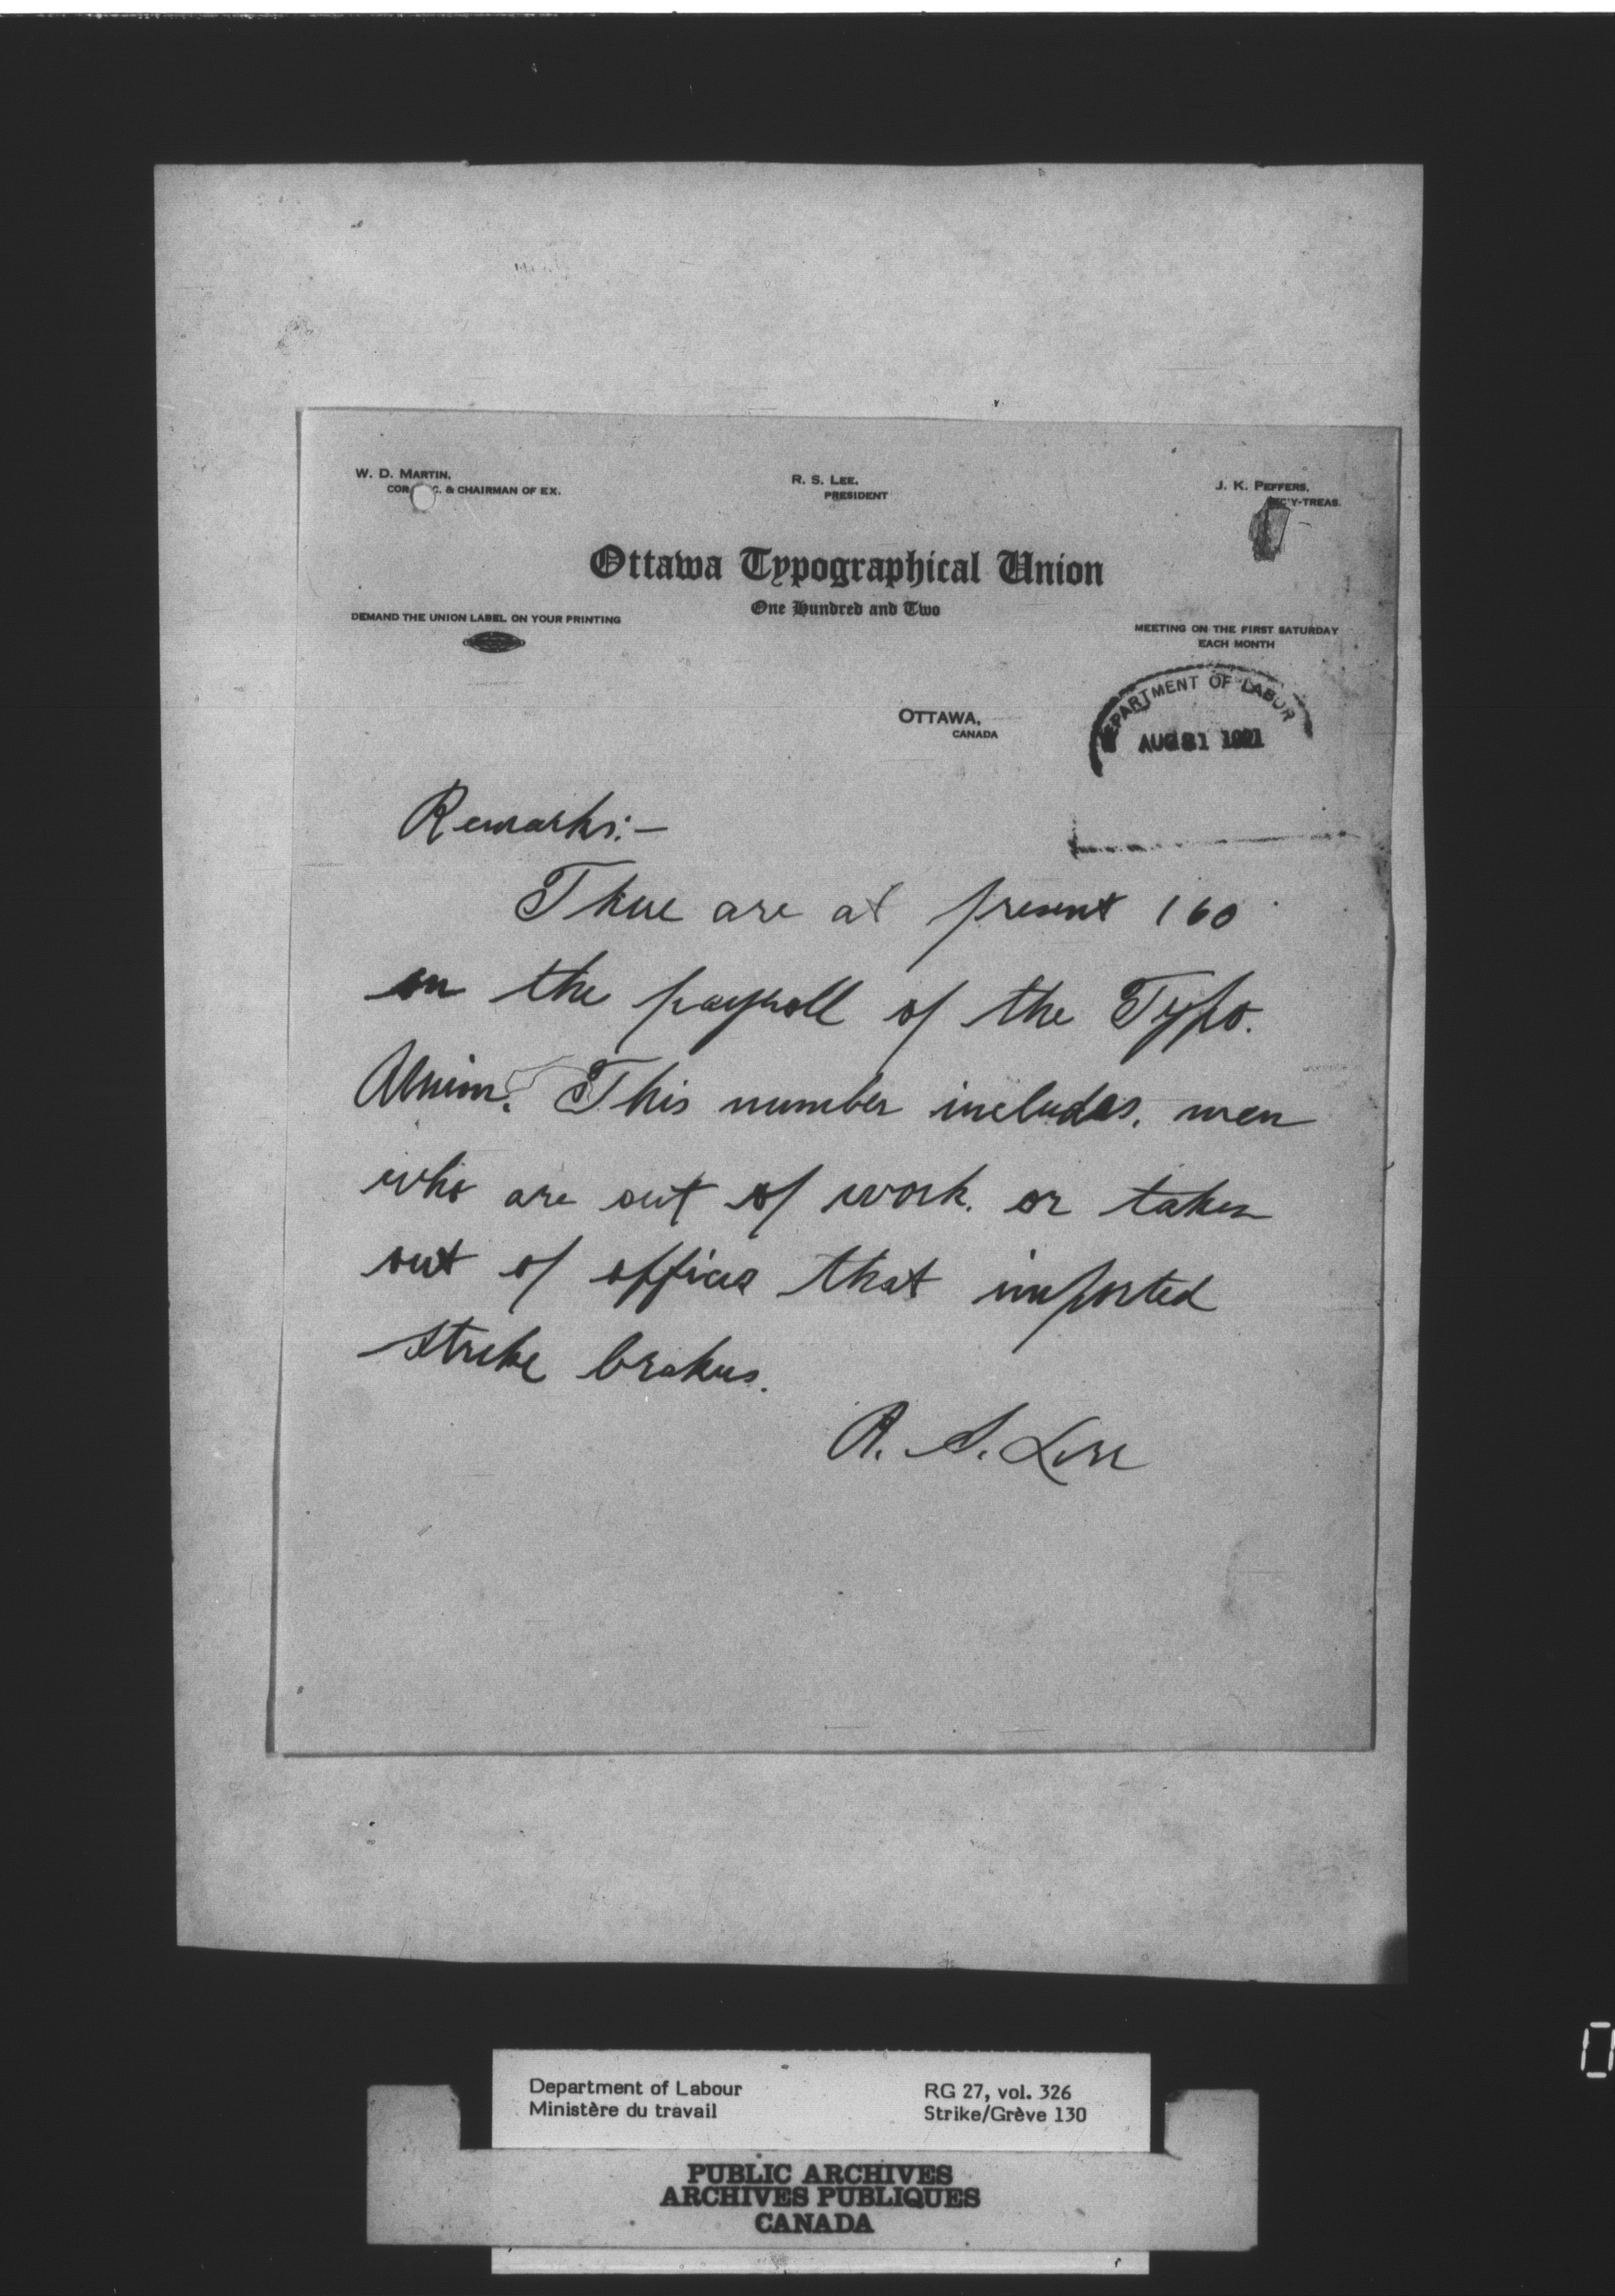 W. D. MARTIN,
COR. C. & CHAIRMAN OF EX.
R. S. LEE,
PRESIDENT
J. K. PEFFERS,
SEC'Y-TREAS.
Ottawa Typographical Union
One Hundred and Two
DEMAND THE UNION LABEL ON YOUR PRINTING
MEETING ON THE FIRST SATURDAY
EACH MONTH
OTTAWA,
CANADA
DEPARTMENT OF LABOR
AUG 31 1921
Remarks:—
There are at present 160
on the payroll of the Typo.
Union. This number includes, men
who are out of work. or taken
out of offices that imported
strike brakers.
R. S. Lee
Department of Labour
Ministère du travail
RG 27, vol. 326
Strike/Grève 130
PUBLIC ARCHIVES
ARCHIVES PUBLIQUES
CANADA